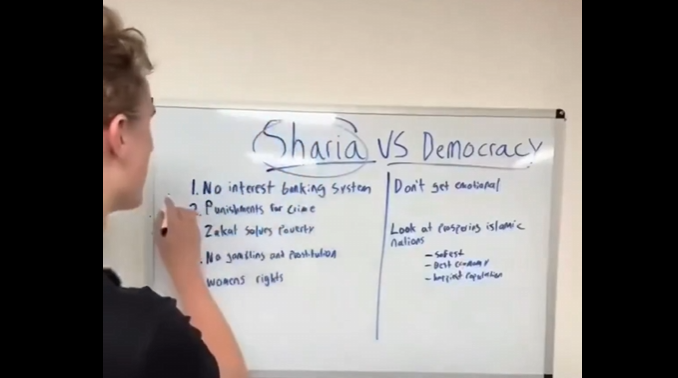 Sharia VS Democracy
1. No interest banking system
2. Punishments for crime
Zakat solves Poverty
. No gambling and Prostitution
womens rights
Don't get emotional
Look at prospering islamic
nations
- Safest
- Best economy
- happiest Population